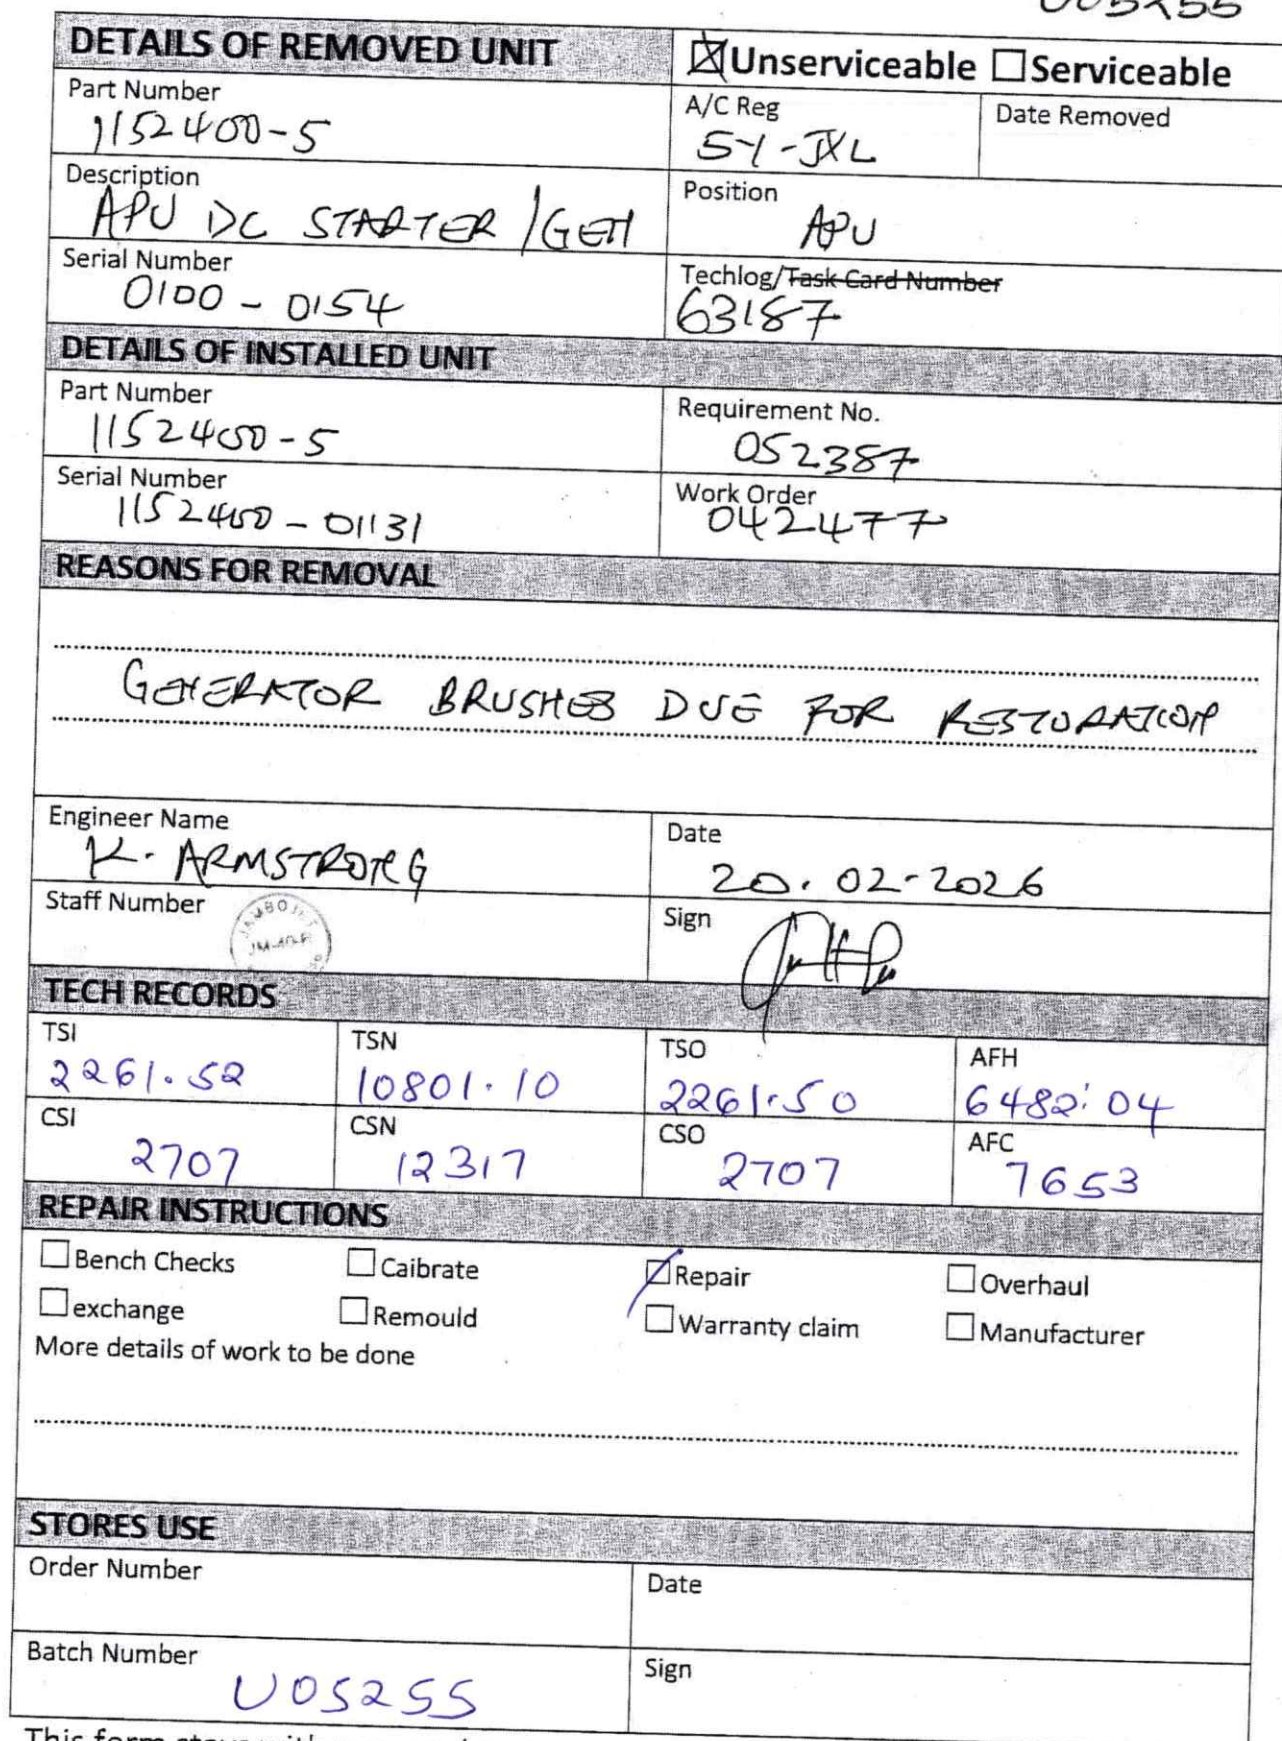 DETAILS OF REMOVED UNIT
Unserviceable Serviceable
Part Number
1152400-5
A/C Reg
5Y-JXL
Date Removed
Description
APU DC STARTER/GEN
Position
APU
Serial Number
0100-0154
Techlog/Task Card Number
63187
DETAILS OF INSTALLED UNIT
Part Number
1152400-5
Requirement No.
052387
Serial Number
1152400-01131
Work Order
042477
REASONS FOR REMOVAL
GENERATOR BRUSHES DUE FOR RESTORATION
Engineer Name
K. ARMSTRONG
Date
20.02-2026
Staff Number
JAMBOJET
Sign
TECH RECORDS
TSI
2261.52
TSN
10801.10
TSO
2261.50
AFH
6482:04
CSI
2707
CSN
12317
CSO
2707
AFC
7653
REPAIR INSTRUCTIONS
Bench Checks Caibrate Repair Overhaul
exchange Remould Warranty claim Manufacturer
More details of work to be done
STORES USE
Order Number
Date
Batch Number
U05255
Sign